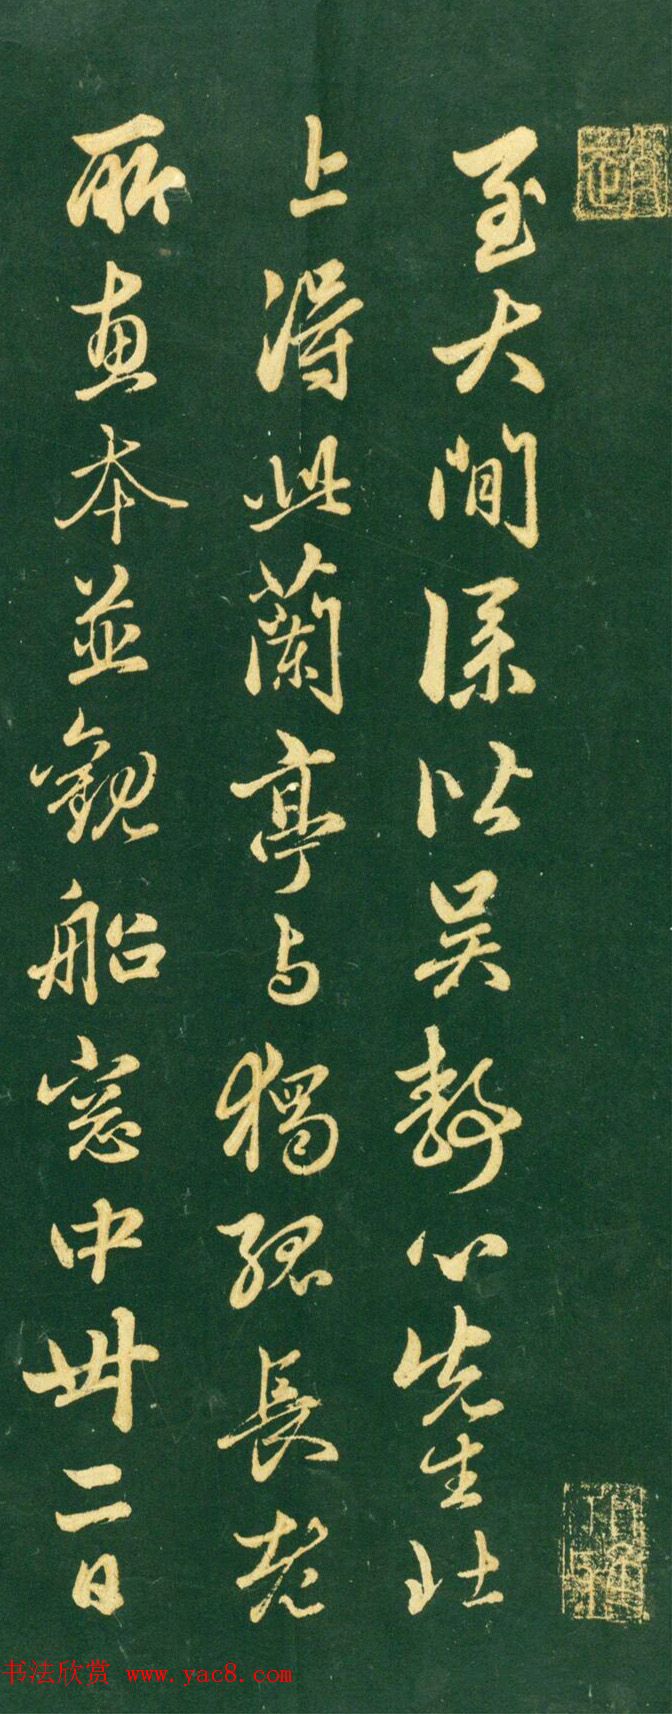 至大間僕從吴静心先生北
上得此蘭亭与獨孤長老
所惠本並觀船窓中卅二日
书法欣赏 www.yac8.com